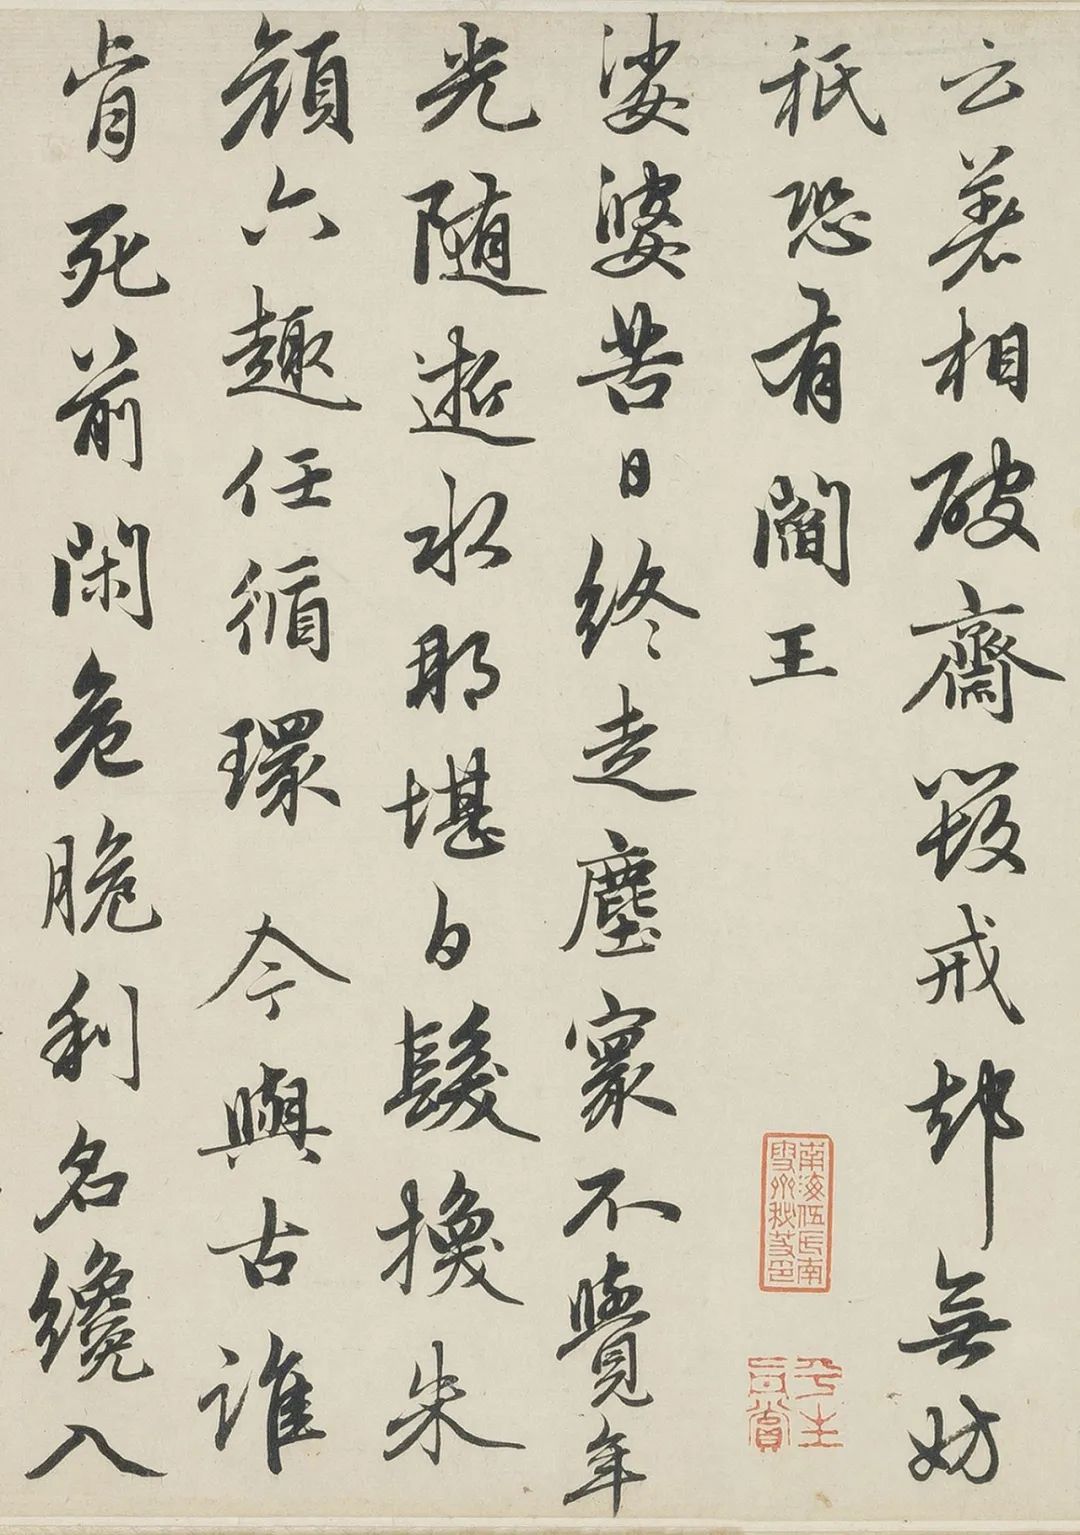 云著相破齋毀戒却無妨
秖恐有閻王
娑婆苦日終走塵寰不覺年
光隨逝水那堪白髮換朱
顏六趣任循環 今與古誰
肯死前閑危脆利名纔入
南海伍氏南雪齋秘笈印
平生真賞